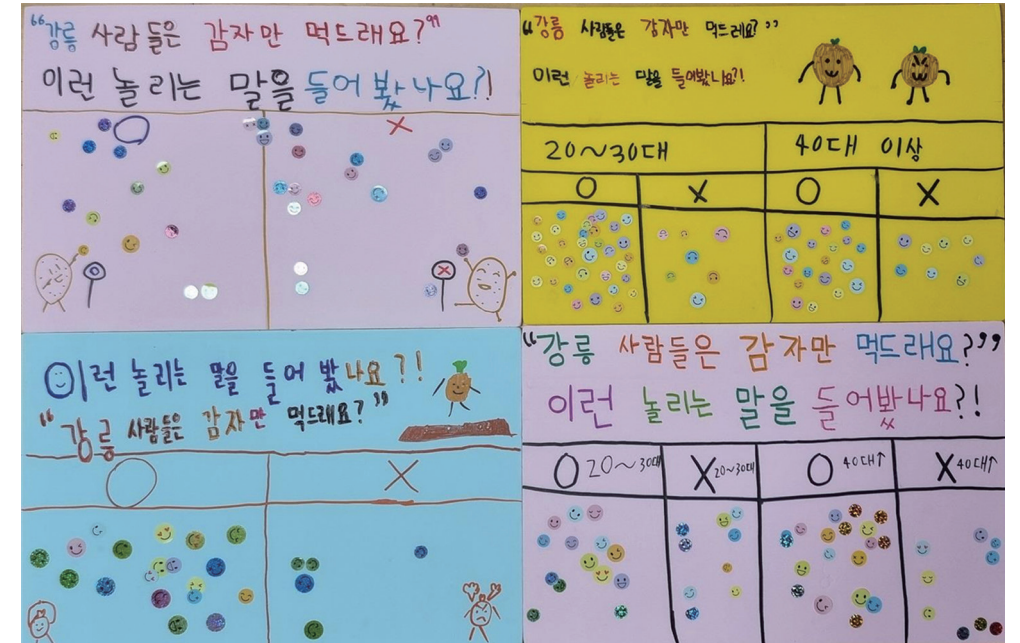 “강릉 사람들은 감자만 먹드래요?”
이런 놀리는 말을 들어 봤나요?!
O X
“강릉 사람들은 감자만 먹드레요?”
이런 놀리는 말을 들어봤나요?!
20~30대 40대 이상
O X O X
이런 놀리는 말을 들어 봤나요?!
“강릉 사람들은 감자만 먹드래요?”
O X
“강릉 사람들은 감자만 먹드래요?”
이런 놀리는 말을 들어봤나요?!
O 20~30대 X 20~30대 O 40대↑ X 40대↑